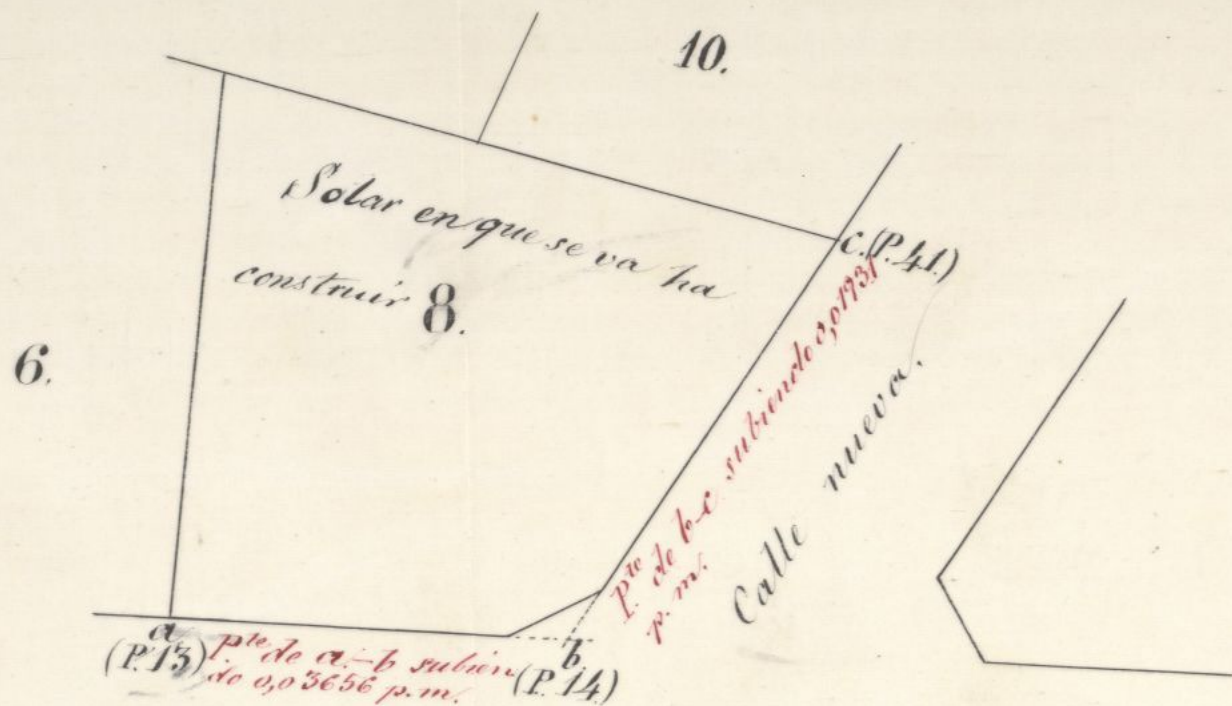 10.
Solar en que se va ha
construir 8.
6.
c. (P. 41.)
Pte de b-c subiendo 0,01931
p. m.
Calle nueva.
a
(P. 13)
Pte de a-b subien
do 0,03656 p. m.
b.
(P. 14)